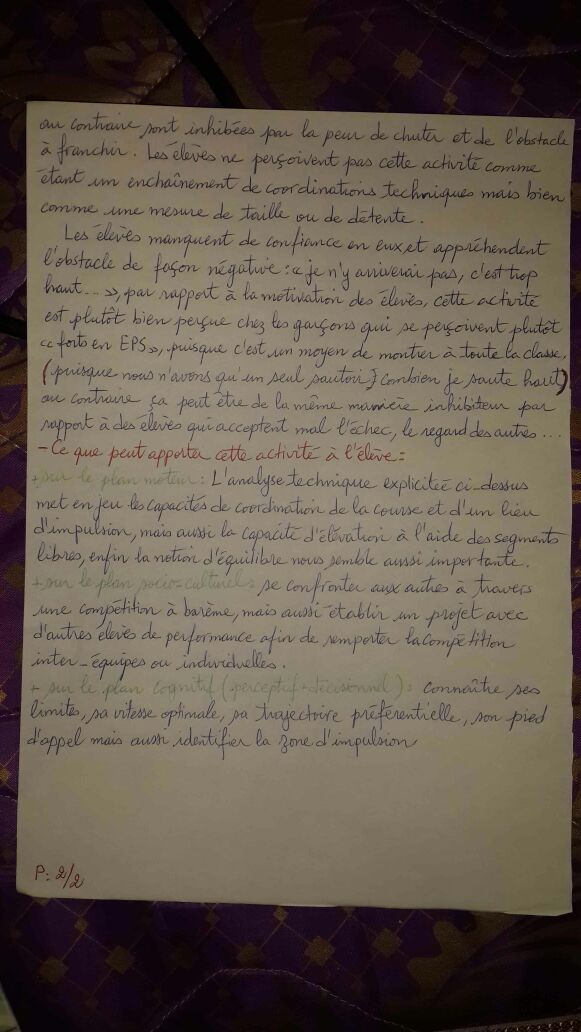 au contraire sont inhibées par la peur de chuter et de l'obstacle
à franchir. Les élèves ne perçoivent pas cette activité comme
étant un enchaînement de coordinations techniques mais bien
comme une mesure de taille ou de détente.
Les élèves manquent de confiance en eux, et appréhendent
l'obstacle de façon négative : « je n'y arriverai pas, c'est trop
haut... », par rapport à la motivation des élèves, cette activité
est plutôt bien perçue chez les garçons qui se perçoivent plutôt
« forts en EPS », puisque c'est un moyen de montrer à toute la classe,
(puisque nous n'avons qu'un seul sautoir) combien je saute haut)
au contraire ça peut être de la même manière inhibiteur par
rapport à des élèves qui acceptent mal l'échec, le regard des autres...
- Ce que peut apporter cette activité à l'élève :
+ sur le plan moteur : L'analyse technique explicitée ci-dessus
met en jeu les capacités de coordination de la course et d'un lieu
d'impulsion, mais aussi la capacité d'élévation à l'aide des segments
libres, enfin la notion d'équilibre nous semble aussi importante.
+ sur le plan socio-culturel : se confronter aux autres à travers
une compétition à barème, mais aussi établir un projet avec
d'autres élèves de performance afin de remporter la compétition
inter-équipes ou individuelles.
+ sur le plan cognitif (perceptif + décisionnel) : connaître ses
limites, sa vitesse optimale, sa trajectoire préférentielle, son pied
d'appel mais aussi identifier la zone d'impulsion
P: 2/2